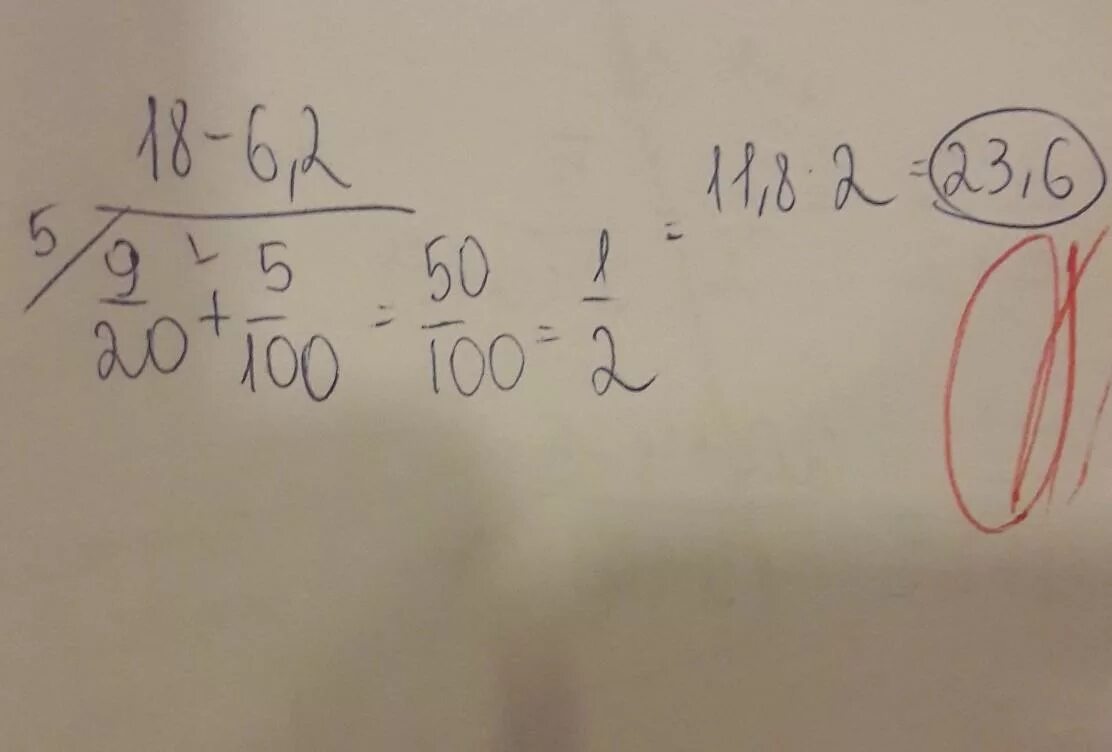 18 - 6,2
5 9/20 + 5/100 = 50/100 = 1/2 = 11,8 · 2 = 23,6